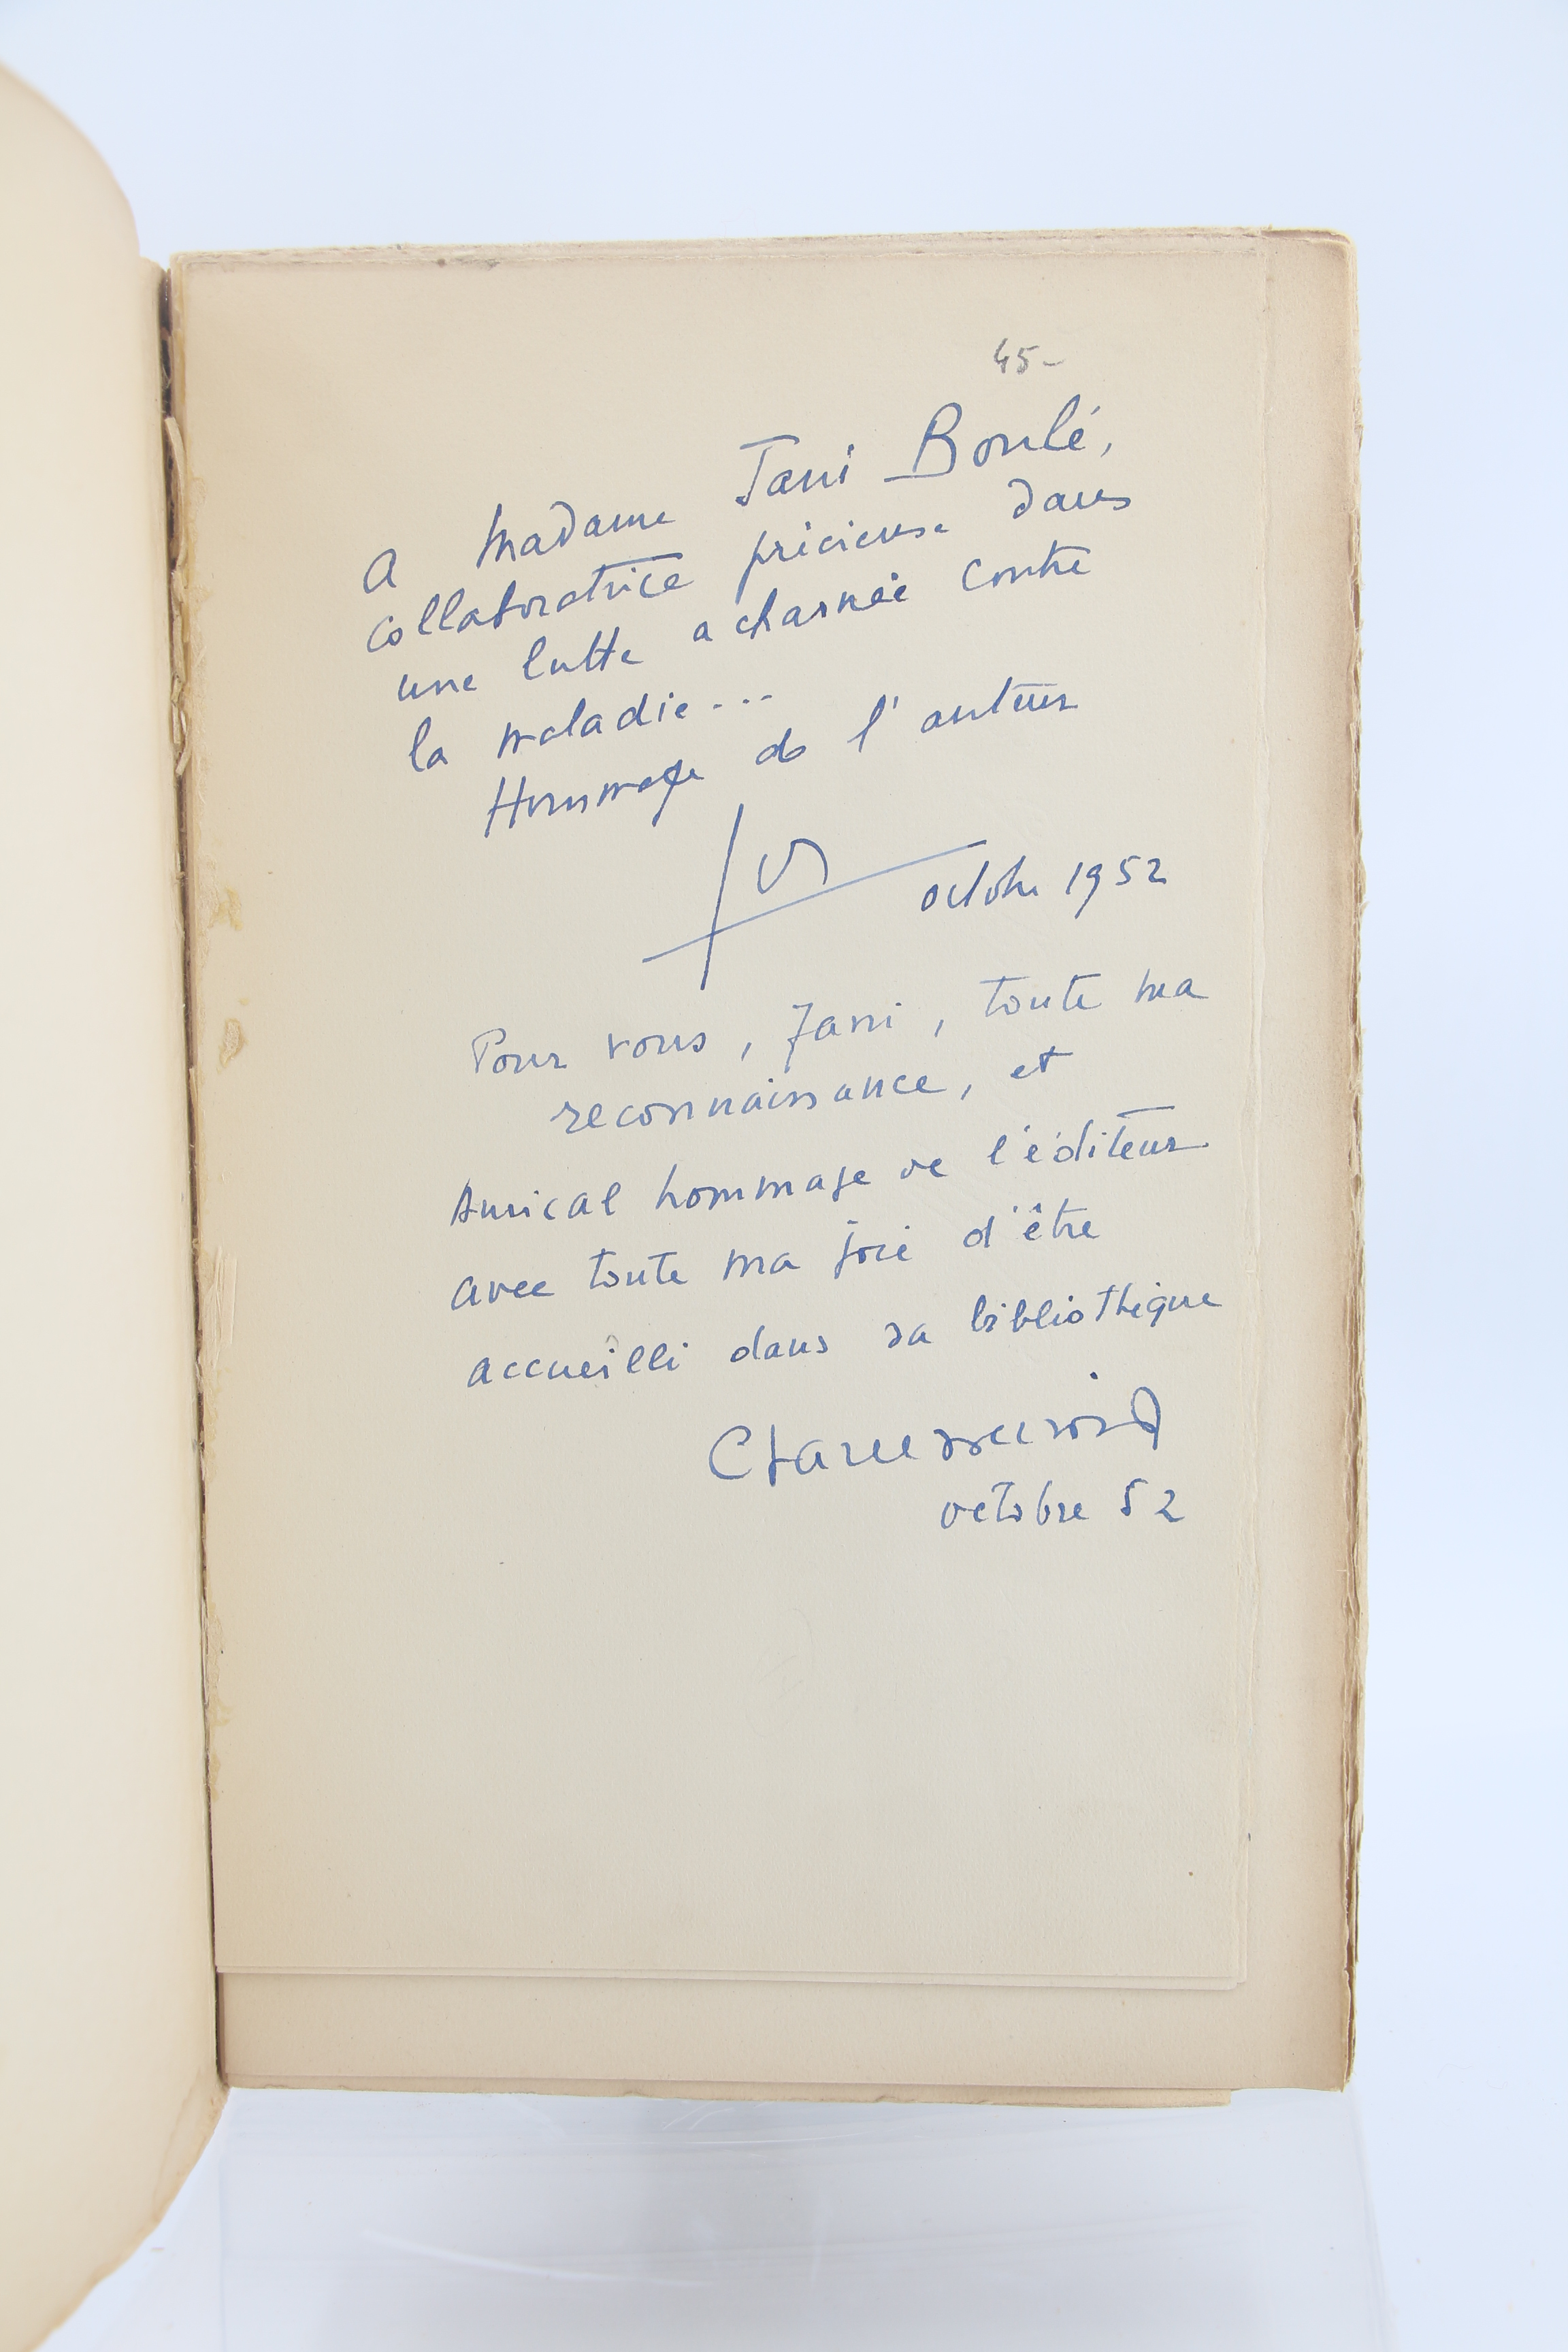 45-
A Madame Jani Boulé,
collaboratrice précieuse dans
une lutte acharnée contre
la maladie...
Hommage de l'auteur
octobre 1952
Pour vous, Jani, toute ma
reconnaissance, et
Amical hommage de l'éditeur
avec toute ma joie d'être
accueilli dans sa bibliothèque
octobre 52